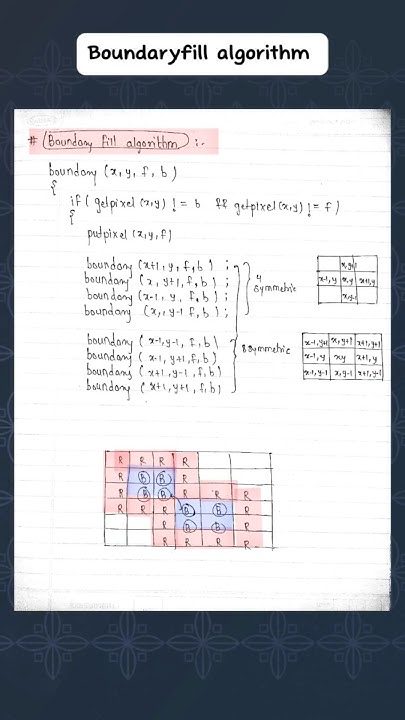 Boundaryfill algorithm
# Boundary fill algorithm :-
boundary (x, y, f, b)
{
if ( getpixel (x,y) != b && getpixel(x,y) != f )
{
putpixel (x,y,f)
boundary (x+1, y, f, b) ;
boundary (x, y+1, f, b) ;
boundary (x-1, y, f, b) ;
boundary (x, y-1 f, b) ;
4
symmetric
boundary (x-1, y-1, f, b)
boundary (x-1, y+1, f, b)
boundary (x+1, y-1, f, b)
boundary (x+1, y+1, f, b)
8 symmetric
x,y+1
x-1, y x, y x+1, y
x,y-1
x-1, y+1 x, y+1 x+1, y+1
x-1, y xy x+1, y
x-1, y-1 x, y-1 x+1, y-1
R R R R
R B B R
R B B R R R
R R R B B R
R B B R
R R R R